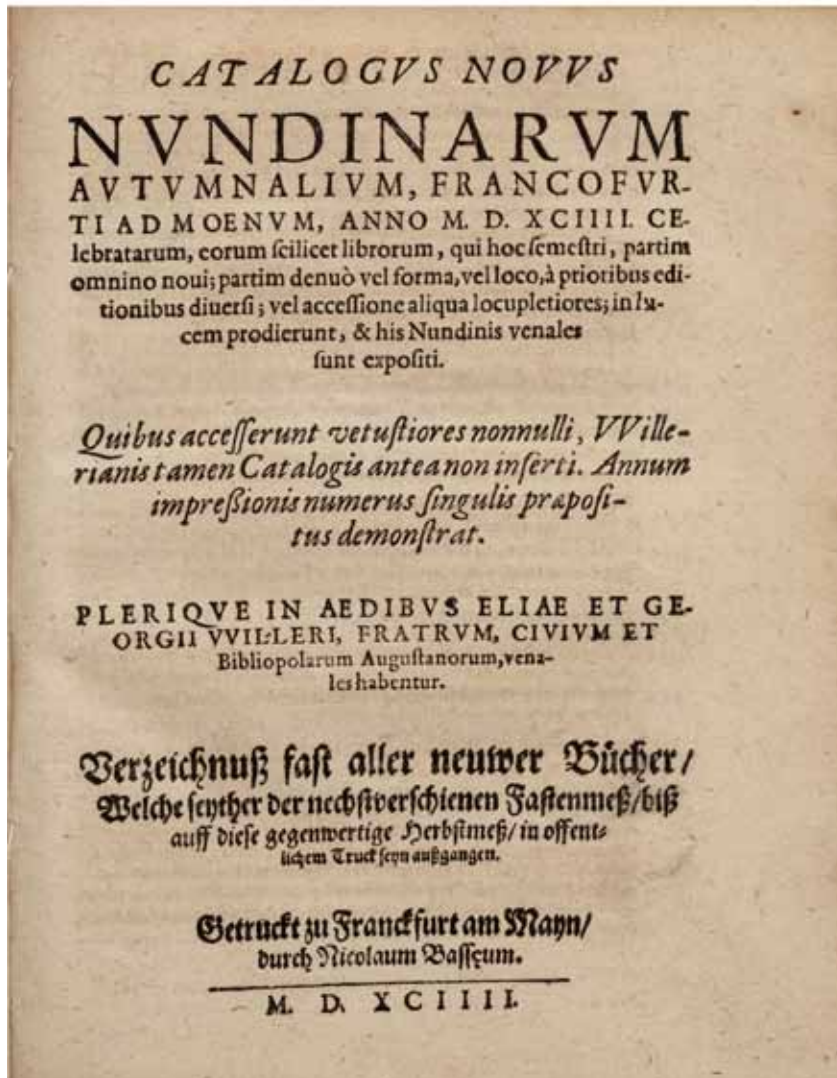 CATALOGVS NOVVS
NVNDINARVM
AVTVMNALIVM, FRANCOFVR-
TI AD MOENVM, ANNO M. D. XCIIII. CE-
lebratarum, eorum ſcilicet librorum, qui hoc ſemeſtri, partim
omnino noui; partim denuò vel forma, vel loco, à prioribus edi-
tionibus diuerſi; vel acceſſione aliqua locupletiores; in lu-
cem prodierunt, & his Nundinis venales
ſunt expoſiti.
Quibus acceſſerunt vetuſtiores nonnulli, VVille-
rianis tamen Catalogis antea non inſerti. Annum
impreßionis numerus ſingulis præpoſi-
tus demonſtrat.
PLERIQVE IN AEDIBVS ELIAE ET GE-
ORGII VVILLERI, FRATRVM, CIVIVM ET
Bibliopolarum Auguſtanorum, vena-
les habentur.
Verzeichnuß faſt aller neuwer Bücher/
Welche ſeyther der nechſtverſchienen Faſtenmeß/ biß
auff dieſe gegenwertige Herbſtmeß/ in offent-
lichem Truck ſeyn außgangen.
Getruckt zu Franckfurt am Mayn/
durch Nicolaum Baſſęum.
M. D. XCIIII.